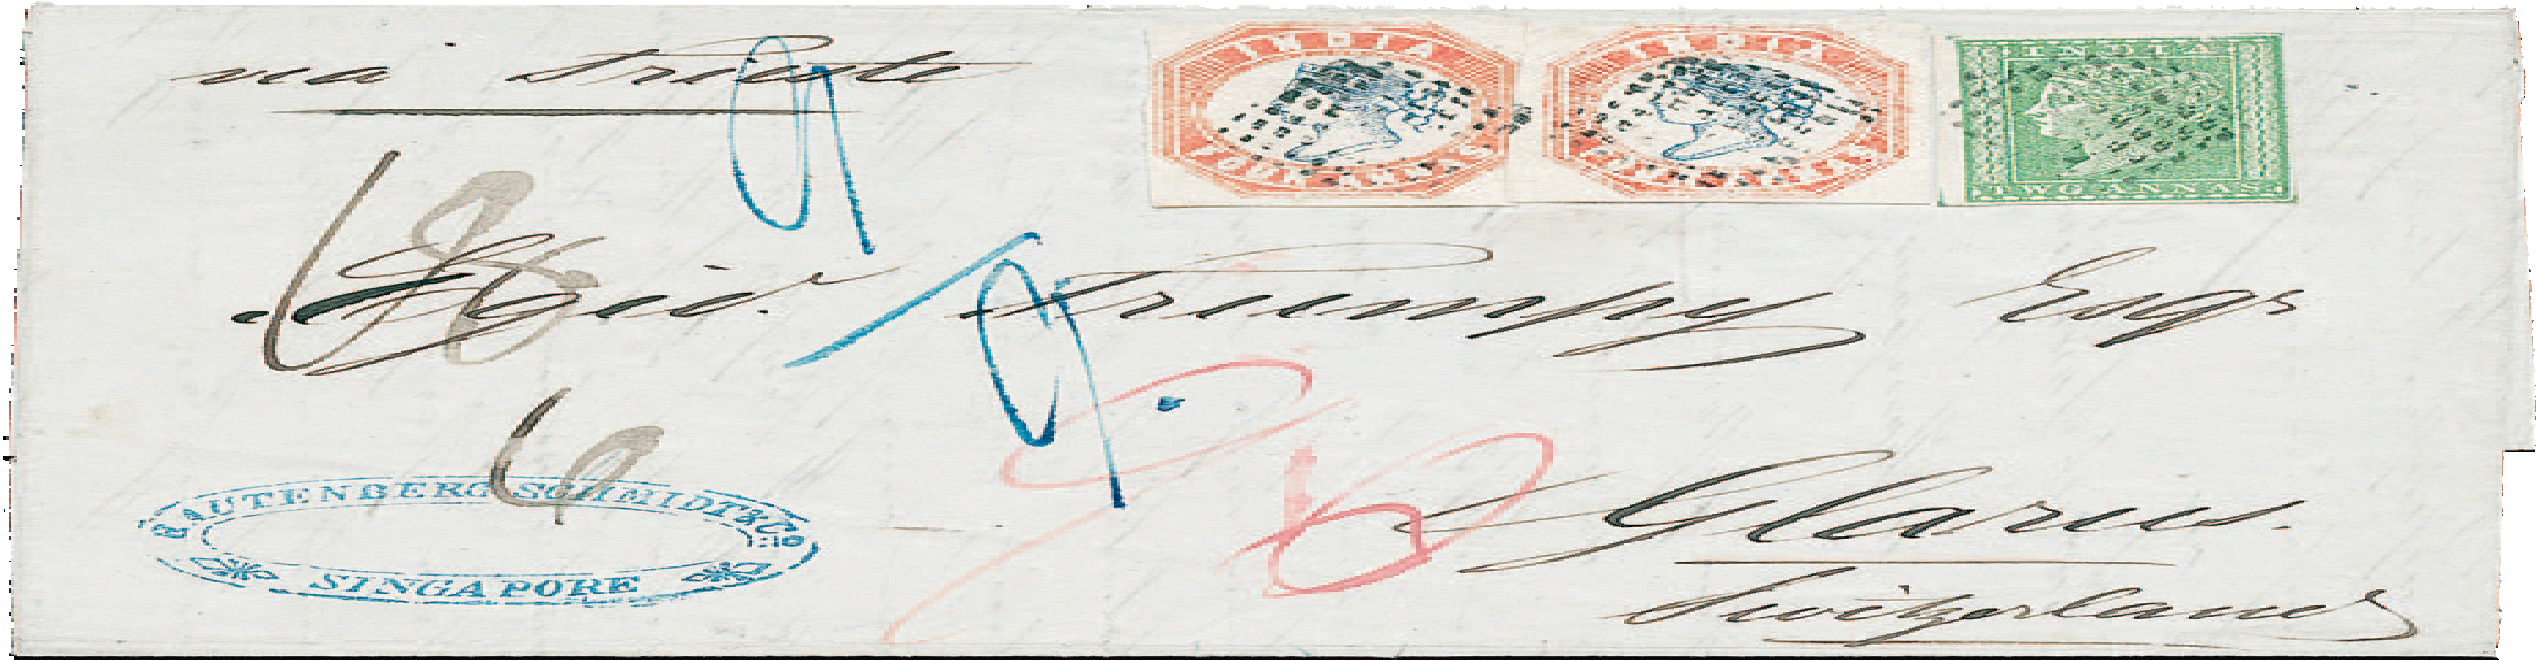 via Trieste
INDIA
FOUR ANNAS
INDIA
FOUR ANNAS
INDIA
TWO ANNAS
9
Trümpy Esqr
9
6
Glarus.
Switzerland
RAUTENBERG SCHMIDT & Co
SINGAPORE